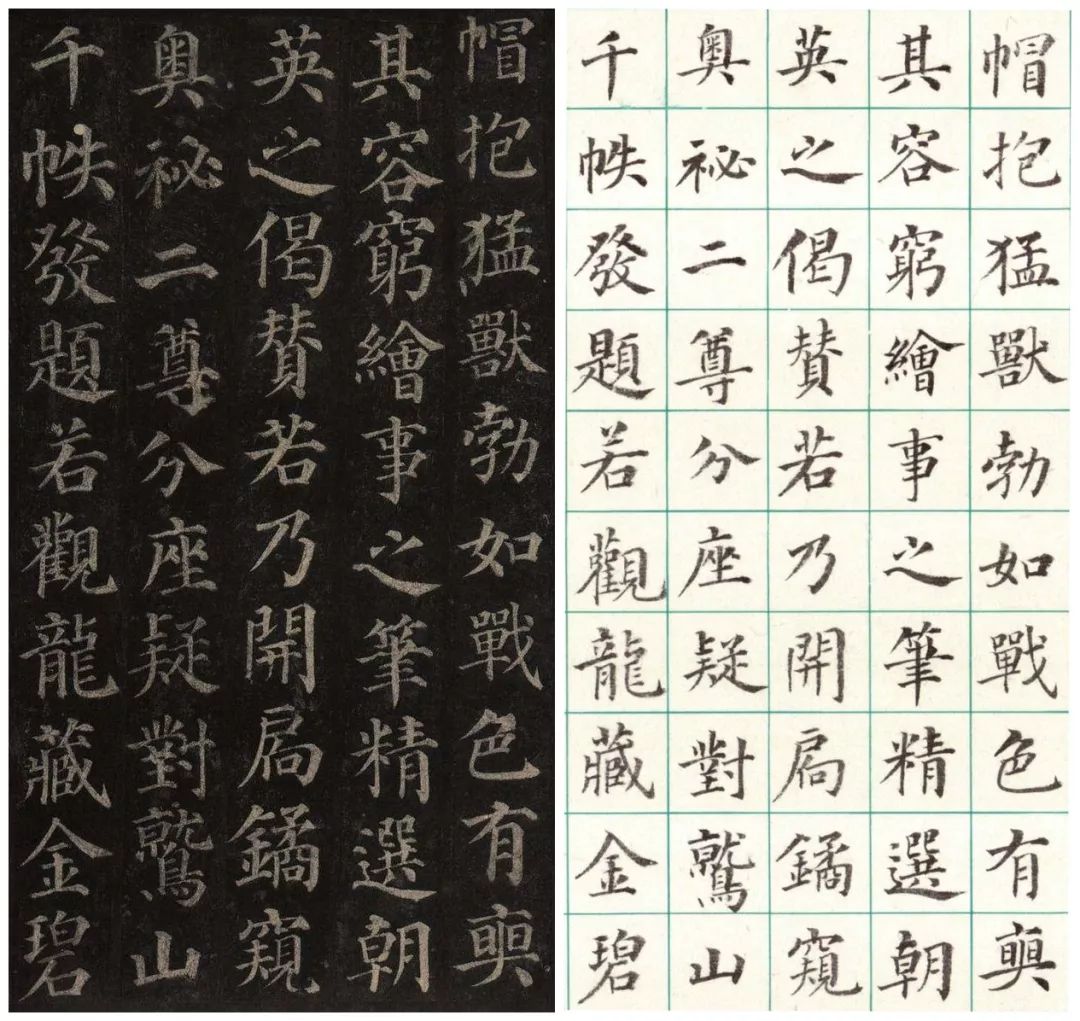 帽抱猛獸勃如戰色有奭
其容窮繪事之筆精選朝
英之偈賛若乃開扃鐍窺
奧祕二尊分座疑對鷲山
千帙發題若觀龍藏金碧
帽抱猛獸勃如戰色有奭
其容窮繪事之筆精選朝
英之偈賛若乃開扃鐍窺
奧祕二尊分座疑對鷲山
千帙發題若觀龍藏金碧